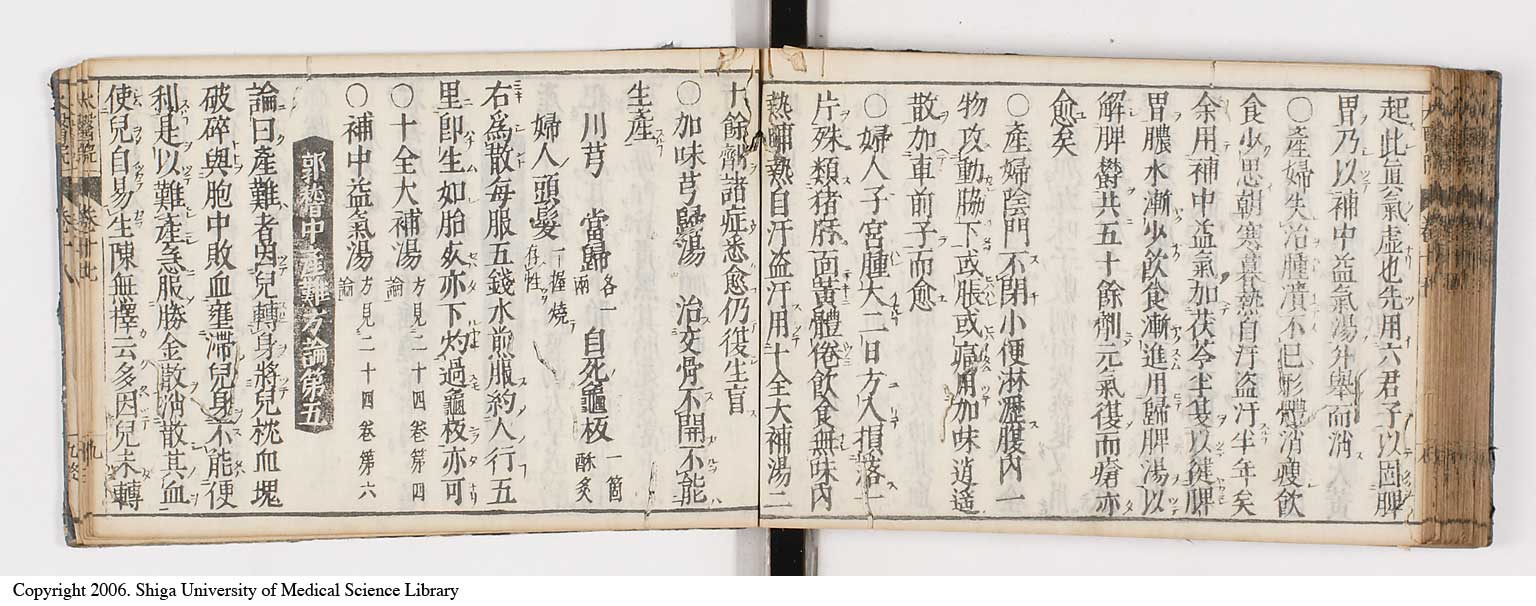 起此眞氣虛也先用六君子以固脾
胃乃以補中益氣湯升舉而消
〇產婦失治腫潰不已形體消瘦飲
食少思朝寒暮熱自汗盜汗半年矣
余用補中益氣加茯苓半夏以健脾
胃膿水漸少飲食漸進用歸脾湯以
解脾欝共五十餘劑元氣復而瘡亦
愈矣
〇產婦陰門不閉小便淋瀝腹內一
物攻動脇下或脹或痛用加味逍遥
散加車前子而愈
〇婦人子宮腫大二日方入損落一
片殊類猪肝面黃體倦飲食無味內
熱晡熱自汗盜汗用十全大補湯二
十餘劑諸症悉愈仍復生育
〇加味芎歸湯 治交骨不開不能
生產
川芎 當歸各一兩 自死龜板一箇酥炙
婦人頭髮一握燒存性
右爲散每服五錢水煎服約人行五
里即生如胎死亦下灼過龜板亦可
〇十全大補湯方見二十四卷第四論
〇補中益氣湯方見二十四卷第六論
郭稽中產難方論第五
論曰產難者因兒轉身將兒枕血塊
破碎與胞中敗血壅滯兒身不能便
利是以難產急服勝金散消散其血
使兒自易生陳無擇云多因兒未轉
Copyright 2006. Shiga University of Medical Science Library